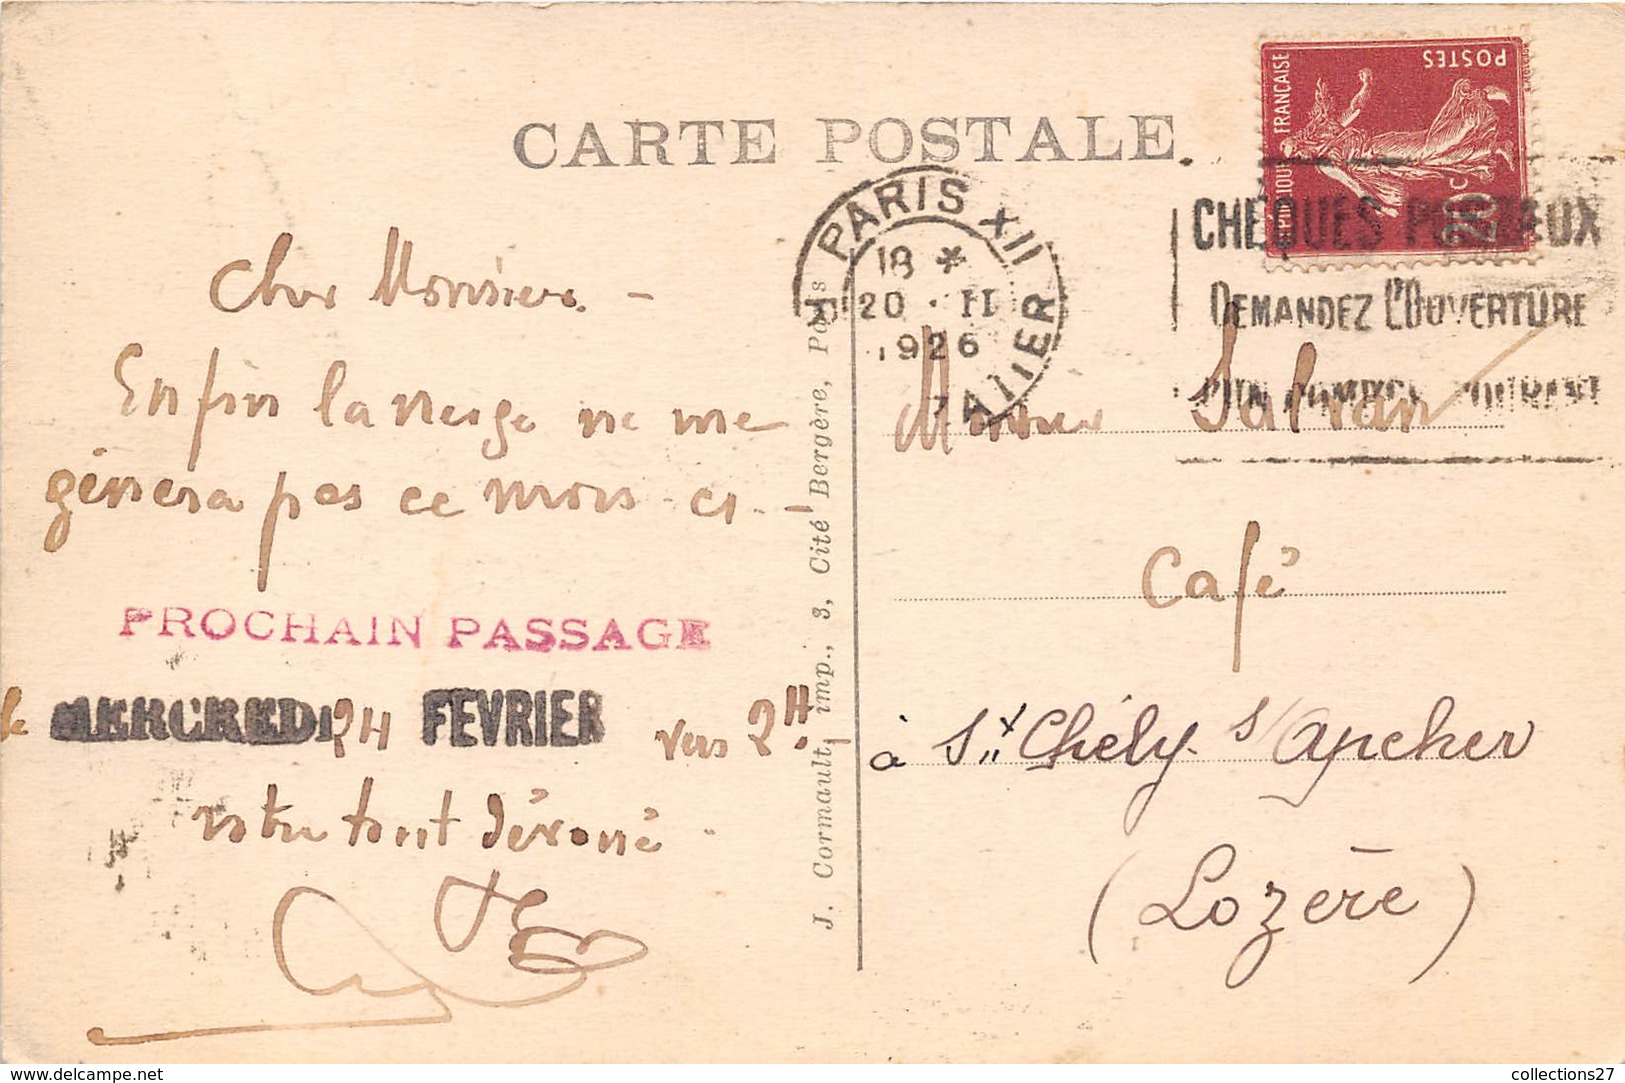 CARTE POSTALE
RÉPUBLIQUE FRANÇAISE
POSTES
20c
PARIS XII
18 *
20 · II
1926
CHÈQUES POSTAUX
DEMANDEZ L'OUVERTURE
D'UN COMPTE COURANT
Cher Monsieur –
Enfin la neige ne me
gênera pas ce mois-ci. –
PROCHAIN PASSAGE
le MERCREDI 24 FEVRIER vers 2H.
votre tout dévoué.
J. Cormault, imp., 3, Cité Bergère, Paris
Monsieur Salvan
Café
à St Chély s/ Apcher
(Lozère)
collections27